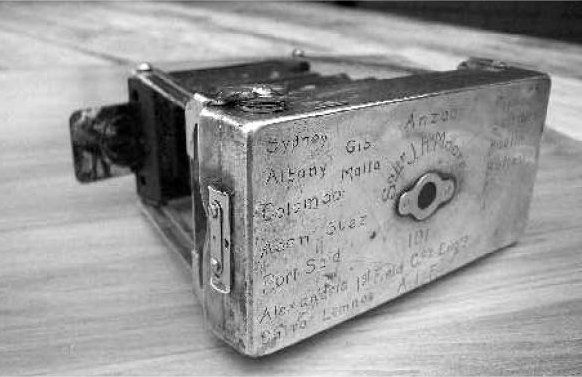 Sydney Gib Anzac
Albany Malta
Colombo Sapr J. H. Moore
Aden Suez
Port Said 101
Alexandria 1st Field Coy Engrs
Cairo Lemnos A.I.F.